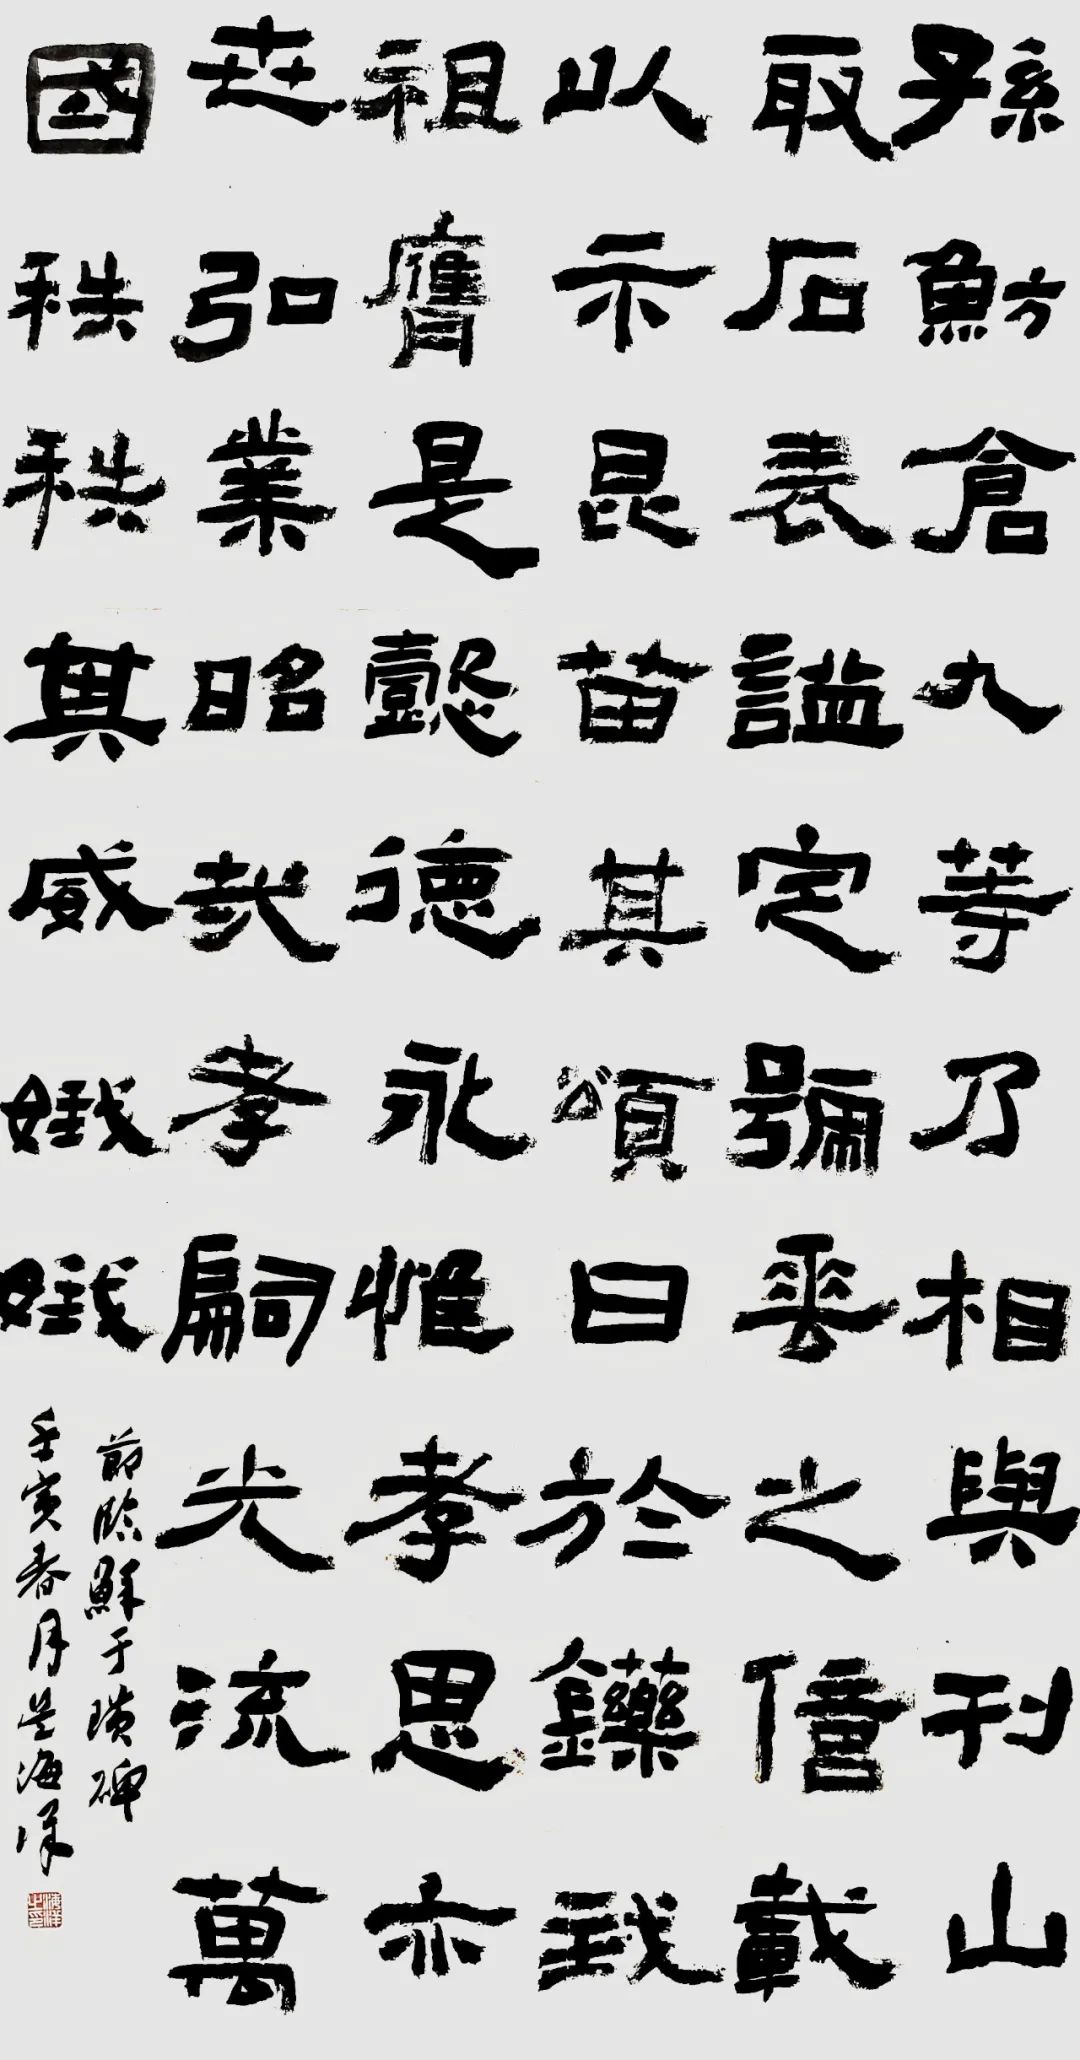 孫魴倉九等乃相與刊山
取石表謚定號垂之億載
以示昆苗其頌曰於鑠我
祖膺是懿德永惟孝思亦
世弘業昭哉孝嗣光流萬
國秩秩其威娥娥
節臨鮮于璜碑
壬寅春月吴海洋
海洋之印